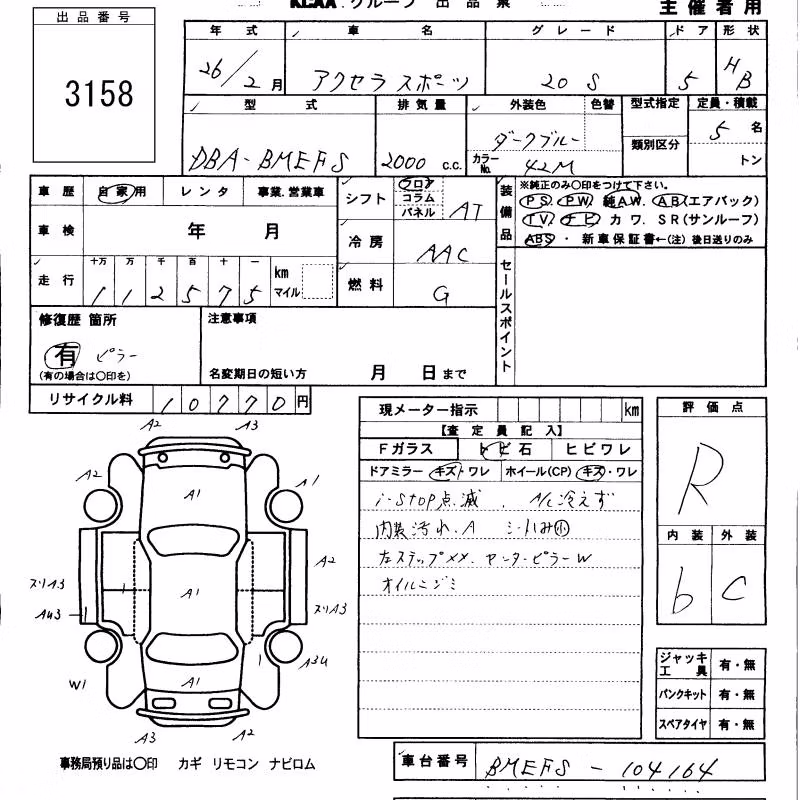 KCAA グループ 出品票
主催者用
出品番号
3158
年式 車名 グレード ドア 形状
26/2月 アクセラスポーツ 20S 5 HB
型式 排気量 外装色 色替 型式指定 定員・積載
DBA-BMEFS 2000 c.c. ダークブルー 類別区分 5名
カラーNo. 42M トン
車歴 自家用 レンタ 事業.営業車
シフト フロア コラム パネル AT
装備品 ※純正のみ○印をつけて下さい。
PS PW 純AW. AB(エアバック)
TV ナビ カワ. SR(サンルーフ)
ABS ・ 新車保証書←(注) 後日送りのみ
車検 年 月
冷房 AAC
走行 十万 万 千 百 十 一
112575 km マイル
燃料 G
セールスポイント
修復歴 箇所
有 ピラー
(有の場合は○印を)
注意事項
名変期日の短い方 月 日まで
リサイクル料 10770円
現メーター指示 km
【査定員記入】
Fガラス トビ石 ヒビワレ
ドアミラー キズ・ワレ ホイール(CP) キズ・ワレ
i-stop点滅. A/C冷えず
内装汚れ.A シートハみ小
左ステップメメ. センターピラーW
オイルニジミ
評価点
R
内装 外装
b C
A2 A3
A2 A1 A1
A2
スリA3 A1 スリA3
AU3
A3U
W1 A1
A3 A2
ジャッキ工具 有・無
パンクキット 有・無
スペアタイヤ 有・無
事務局預り品は○印 カギ リモコン ナビロム
車台番号 BMEFS - 104164